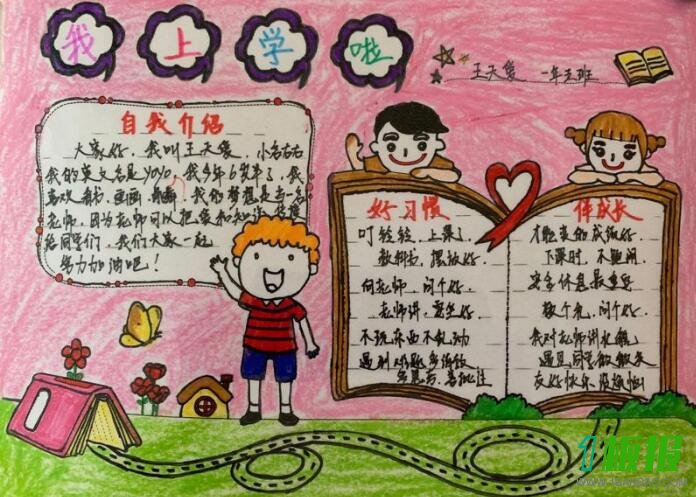 我上学啦
王天 一年五班
自我介绍
大家好,我叫王天,小名右右
我的英文名是yoyo,我今年6岁半了,我
喜欢看书,画画,我的梦想是当一名
老师,因为老师可以把爱和知识
给同学们,我们大家一起
努力加油吧!
好习惯
叮铃铃,上课了
教科书,摆放好
向老师,问个好
老师讲,要坐好
不玩东西不乱动
遇到难题多请教
多思考
伴成长
下课时,不
安全休息最重要
敬个礼,问个好
我对老师讲礼貌
遇见同学微微笑
友好快乐没烦恼
板报